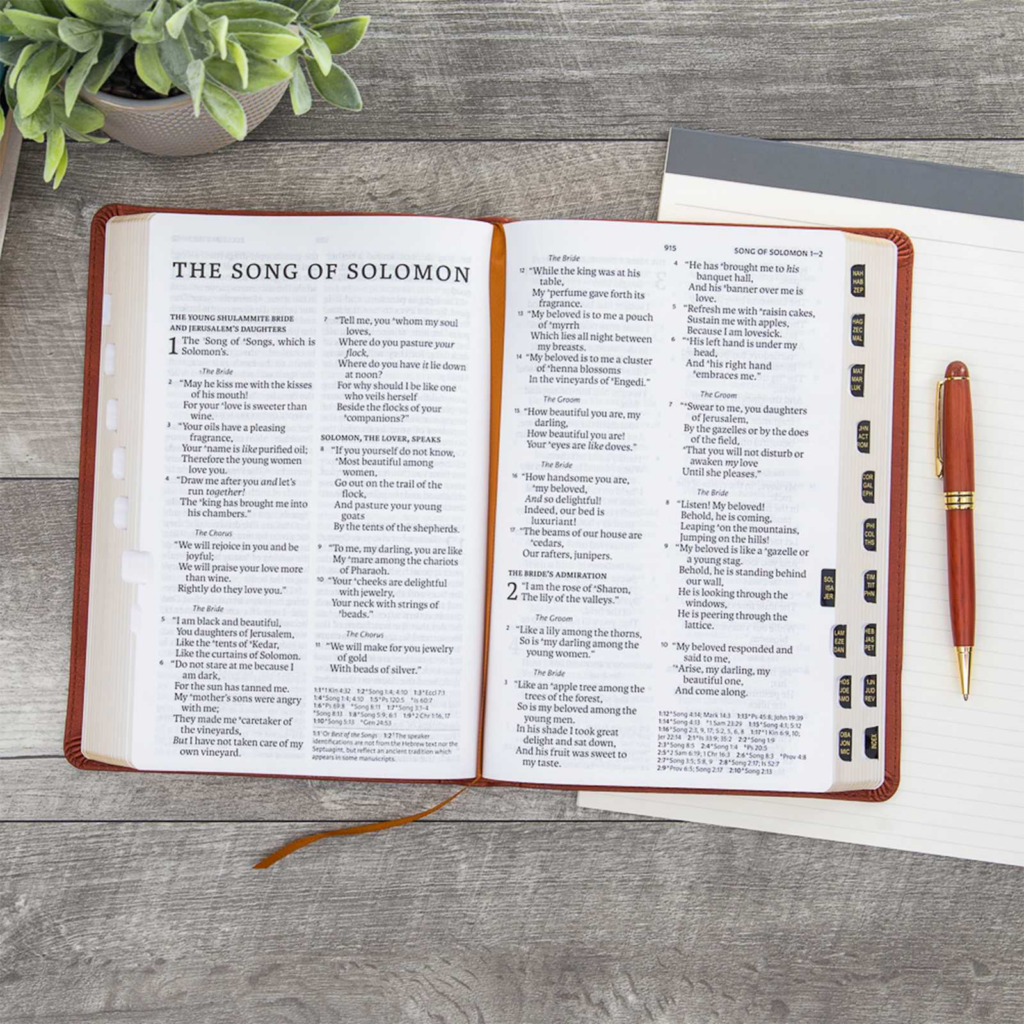 THE SONG OF SOLOMON
THE YOUNG SHULLAMMITE BRIDE
AND JERUSALEM'S DAUGHTERS
1 The ¹Song of ªSongs, which is
Solomon's.
¹The Bride
2 "May he kiss me with the kisses
of his mouth!
For your ªlove is sweeter than
wine.
3 "Your oils have a pleasing
fragrance,
Your ªname is like purified oil;
Therefore the young women
love you.
4 "Draw me after you and let's
run together!
The ªking has brought me into
his chambers."
The Chorus
"We will rejoice in you and be
joyful;
We will praise your love more
than wine.
Rightly do they love you."
The Bride
5 "I am black and beautiful,
You daughters of Jerusalem,
Like the ªtents of ªKedar,
Like the curtains of Solomon.
6 "Do not stare at me because I
am dark,
For the sun has tanned me.
My ªmother's sons were angry
with me;
They made me ªcaretaker of
the vineyards,
But I have not taken care of my
own vineyard.
7 "Tell me, you ªwhom my soul
loves,
Where do you pasture your
flock,
Where do you have it lie down
at noon?
For why should I be like one
who veils herself
Beside the flocks of your
ªcompanions?"
SOLOMON, THE LOVER, SPEAKS
8 "If you yourself do not know,
ªMost beautiful among
women,
Go out on the trail of the
flock,
And pasture your young
goats
By the tents of the shepherds.
9 "To me, my darling, you are like
My ªmare among the chariots
of Pharaoh.
10 "Your ªcheeks are delightful
with jewelry,
Your neck with strings of
ªbeads."
The Chorus
11 "We will make for you jewelry
of gold
With beads of silver."
1:1 ª1 Kin 4:32 1:2 ªSong 1:4; 4:10 1:3 ªEccl 7:1
1:1 ¹Or Best of the Songs 1:2 ¹The speaker
identifications are not from the Hebrew text nor the
Septuagint, but reflect an ancient tradition which
appears in some manuscripts.
The Bride
12 "While the king was at his
table,
My ªperfume gave forth its
fragrance.
13 "My beloved is to me a pouch
of ªmyrrh
Which lies all night between
my breasts.
14 "My beloved is to me a cluster
of ªhenna blossoms
In the vineyards of ªEngedi."
The Groom
15 "How beautiful you are, my
darling,
How beautiful you are!
Your ªeyes are like doves."
The Bride
16 "How handsome you are,
ªmy beloved,
And so delightful!
Indeed, our bed is
luxuriant!
17 "The beams of our house are
ªcedars,
Our rafters, junipers.
THE BRIDE'S ADMIRATION
2 "I am the rose of ªSharon,
The lily of the valleys."
The Groom
2 "Like a lily among the thorns,
So is ªmy darling among the
young women."
The Bride
3 "Like an ªapple tree among the
trees of the forest,
So is my beloved among the
young men.
In his shade I took great
delight and sat down,
And his fruit was sweet to
my taste.
915 SONG OF SOLOMON 1—2
4 "He has ªbrought me to his
banquet hall,
And his ªbanner over me is
love.
5 "Refresh me with ªraisin cakes,
Sustain me with apples,
Because I am lovesick.
6 "ªHis left hand is under my
head,
And ªhis right hand
ªembraces me."
The Groom
7 "ªSwear to me, you daughters
of Jerusalem,
By the gazelles or by the does
of the field,
That you will not disturb or
awaken my love
Until she pleases."
The Bride
8 "Listen! My beloved!
Behold, he is coming,
Leaping ªon the mountains,
Jumping on the hills!
9 "My beloved is like a ªgazelle or
a young stag.
Behold, he is standing behind
our wall,
He is looking through the
windows,
He is peering through the
lattice.
10 "My beloved responded and
said to me,
ªArise, my darling, my
beautiful one,
And come along.
1:12 ªSong 4:14; Mark 14:3 1:13 ªPs 45:8; John 19:39
1:14 ªSong 4:13 ª1 Sam 23:29 1:15 ªSong 4:1; 5:12
2:9 ªProv 6:5; Song 2:17 2:10 ªSong 2:13
NAH
HAB
ZEP
HAG
ZEC
MAL
MAT
MAR
LUK
JHN
ACT
ROM
COR
GAL
EPH
PHI
COL
THS
SOL
ISA
JER
TIM
TIT
PHN
LAM
EZE
DAN
HEB
JAS
PET
HOS
JOE
AMO
1JN
JUD
REV
OBA
JON
MIC
INDEX